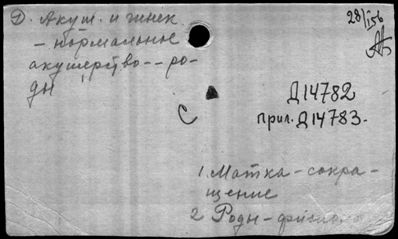 Д. Акуш. и гинек
- нормальное
акушерство -- ро-
ды
28/I 56
С
Д14782
прил. Д14783.
1. Матка - сокра-
щение
2 Роды - физиоло